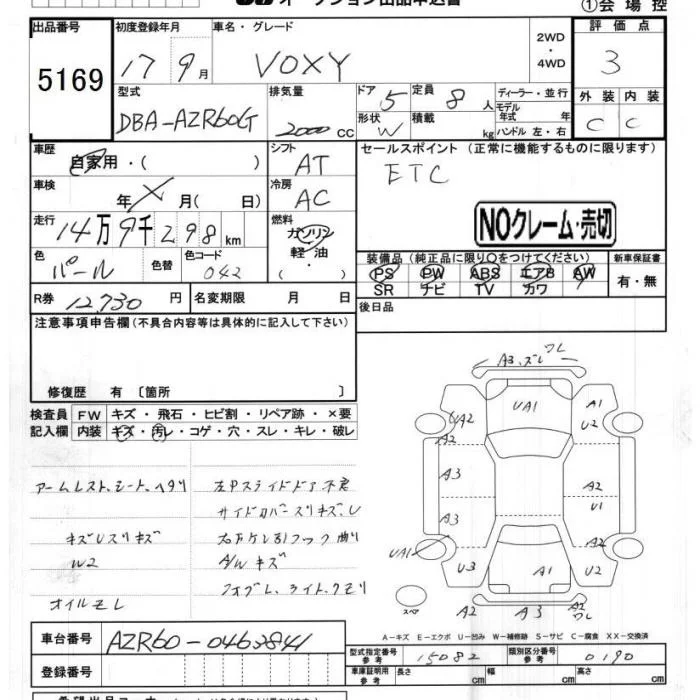 オークション出品申込書
①会場控
出品番号
5169
初度登録年月
17 9月
車名・グレード
VOXY
2WD
・
4WD
評価点
3
型式
DBA-AZR60G
排気量
2000 CC
ドア 5
定員 8 人
ディーラー・並行
モデル年式 年
形状 W
積載 kg
ハンドル 左・右
外装 内装
C C
車歴
自家用・( )
シフト
AT
セールスポイント (正常に機能するものに限ります)
ETC
車検
年 X 月( 日)
冷房
AC
走行
14万9千298km
燃料
ガソリン
軽油
・( )
NOクレーム・売切
色
パール
色替
色コード
042
装備品 (純正品に限り○をつけてください)
PS PW ABS エアB AW
SR ナビ TV カワ
新車保証書
有・無
R券 12,730 円
名変期限 月 日
後日品
注意事項申告欄(不具合内容等は具体的に記入して下さい)
修復歴 有 〔箇所 〕
検査員
記入欄
FW キズ・飛石・ヒビ割・リペア跡・×要
内装 キズ・汚レ・コゲ・穴・スレ・キレ・破レ
アームレスト、シート、ヘタリ
キズUスリキズ
W2
オイルモレ
左Pスライドドア不良
サイドカバースリキズU
右方ケン引フック曲り
A/Wキズ
フォグL、ライト、クモリ
A3、ズレ ワレ
UA1
A1
U2
UA2
A2
A3
A2
U1
A3
UA1
U3
A1
A2
U2
スペア
A2
A3
A2 ワレ
A-キズ E-エクボ U-凹み W-補修跡 S-サビ C-腐食 XX-交換済
車台番号
AZR60-0463841
登録番号
型式指定番号
参考
15082
類別区分番号
参考
0190
車庫証明用
参考
長さ cm
幅 cm
高さ cm